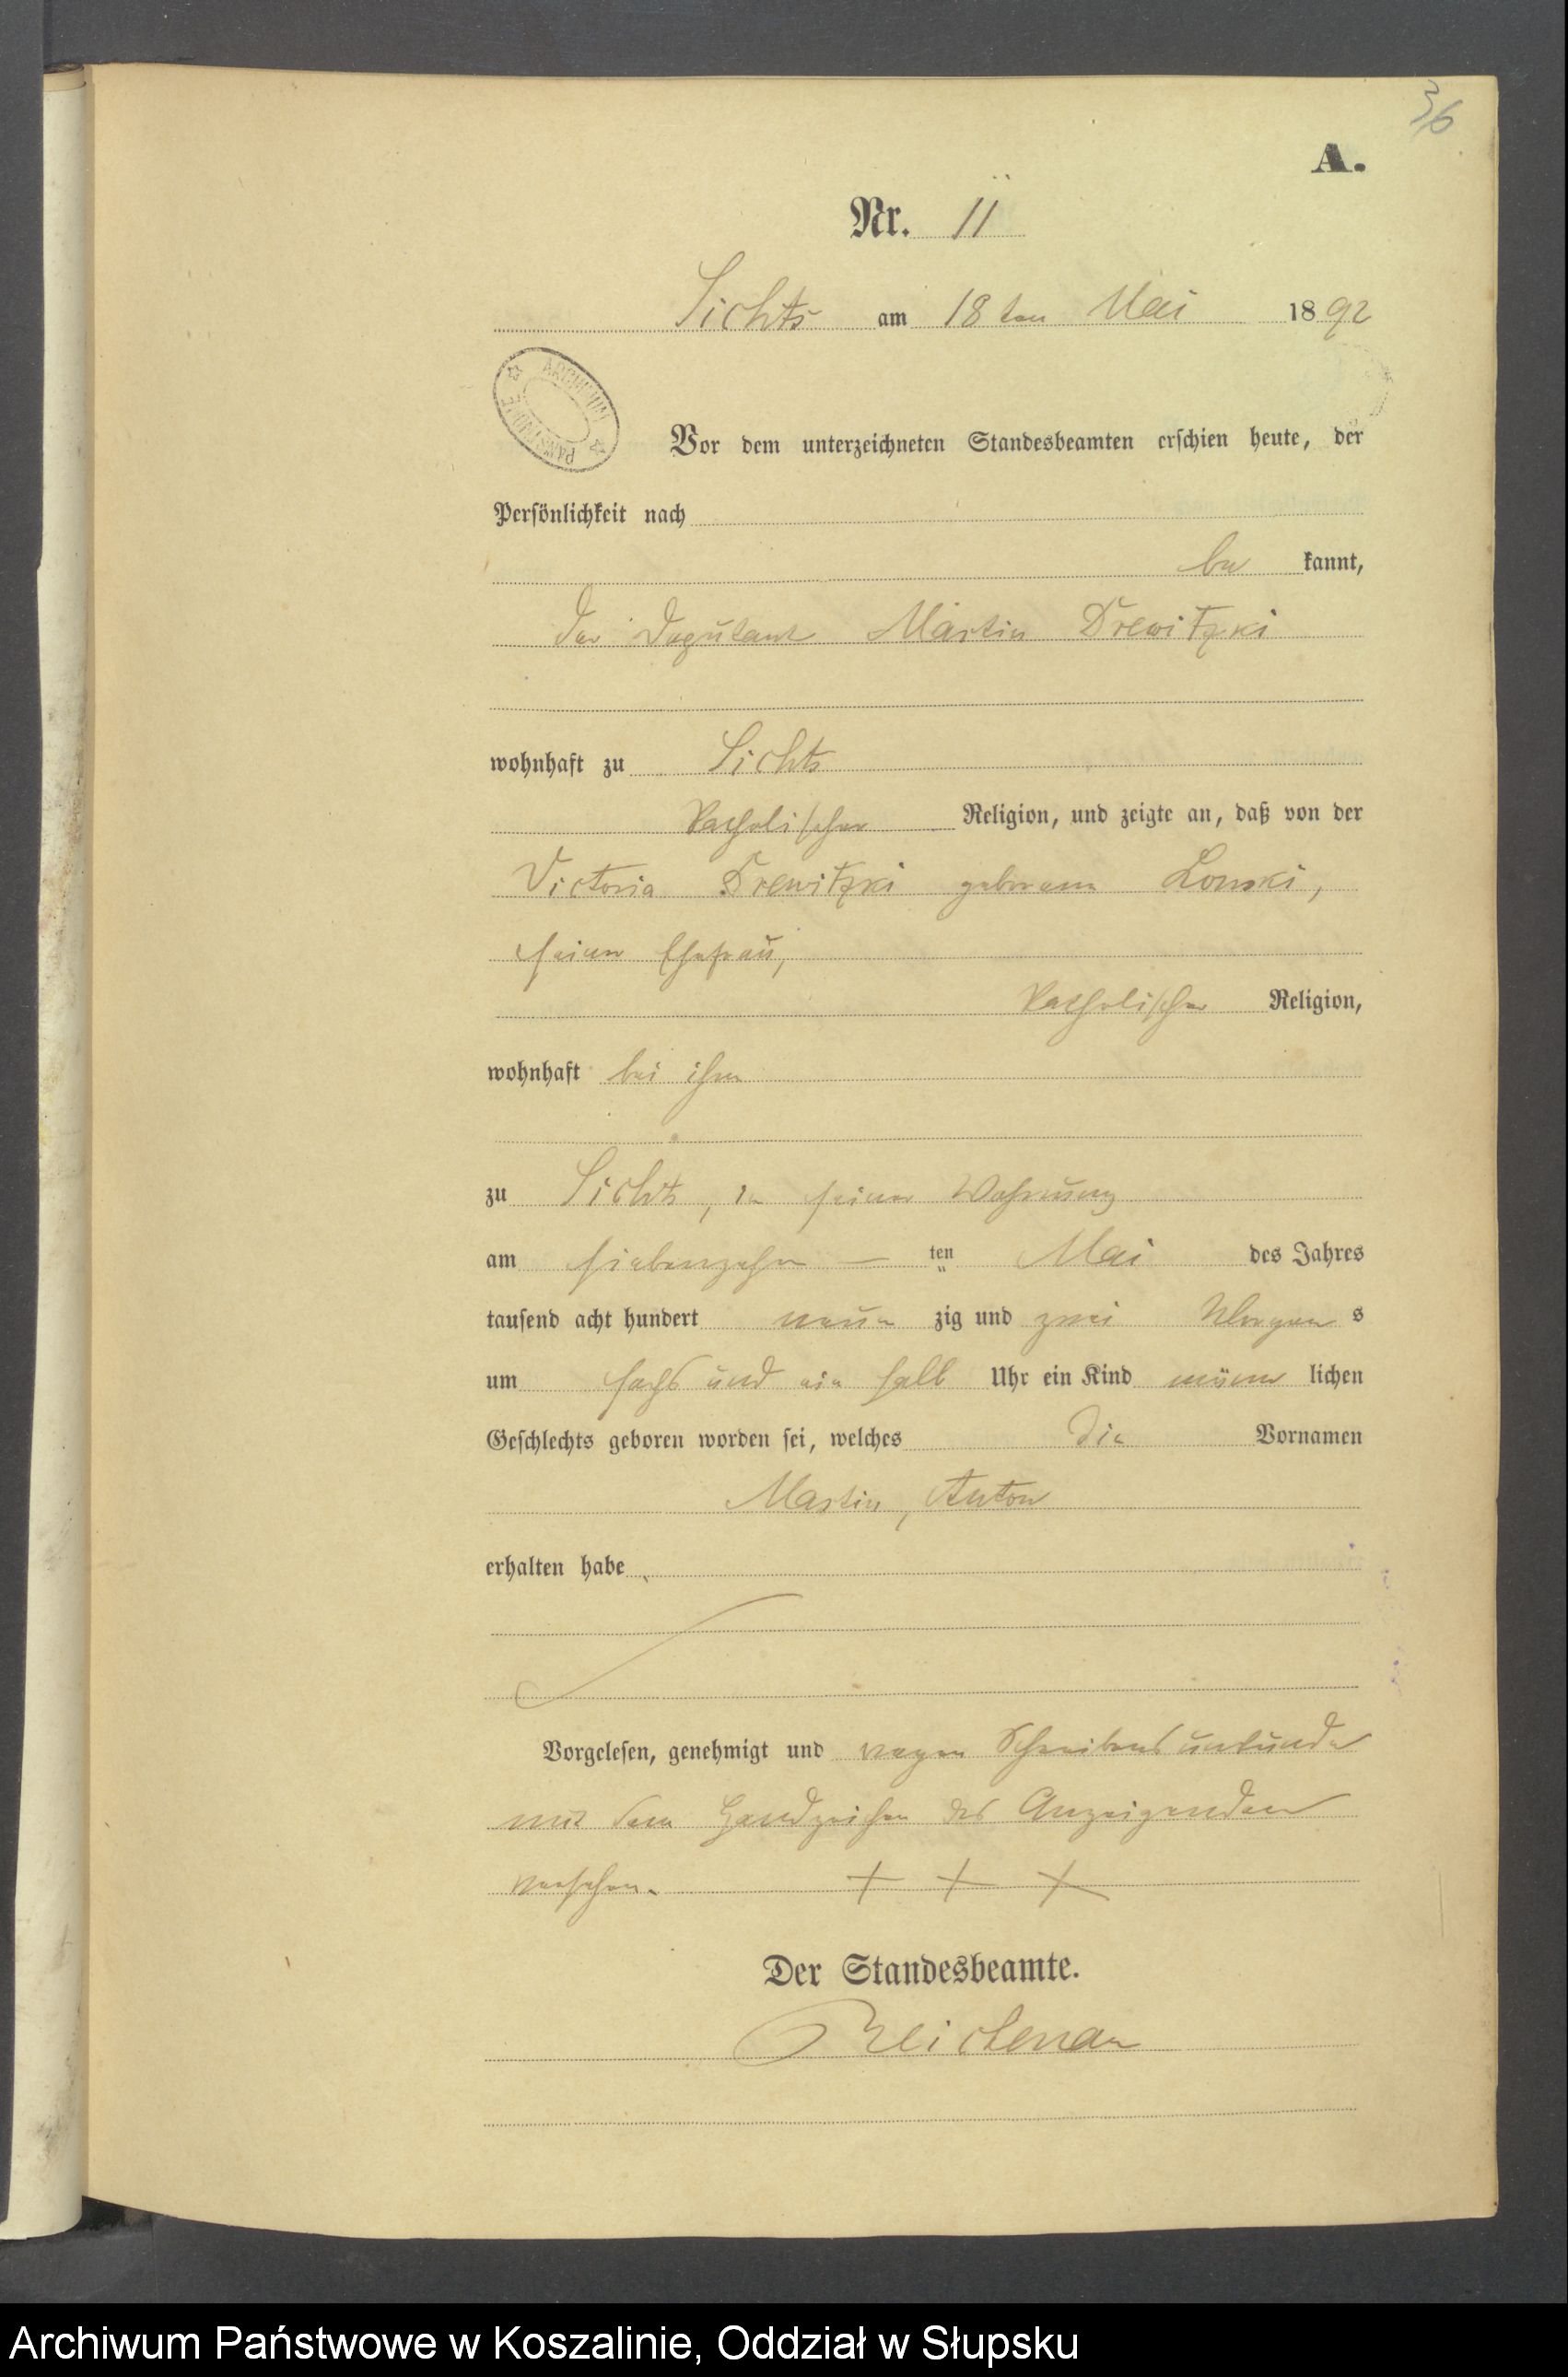 36
A.
Nr. 11
Lichts am 18ten Mai 1892
ARCHIWUM PAŃSTWOWE
Vor dem unterzeichneten Standesbeamten erschien heute, der
Persönlichkeit nach
be kannt,
der Deputant Martin Drewitzki
wohnhaft zu Lichts
katholischer Religion, und zeigte an, daß von der
Victoria Drewitzki geborene Lonski,
seiner Ehefrau,
katholischer Religion,
wohnhaft bei ihm
zu Lichts, in seiner Wohnung
am siebenzehn — ten Mai des Jahres
tausend acht hundert neun zig und zwei Morgen s
um sechs und ein halb Uhr ein Kind männ lichen
Geschlechts geboren worden sei, welches die Vornamen
Martin, Anton
erhalten habe.
Vorgelesen, genehmigt und wegen Schreibensunkunde
mit dem Handzeichen des Anzeigenden
versehen. + + +
Der Standesbeamte.
Reichenau
Archiwum Państwowe w Koszalinie, Oddział w Słupsku